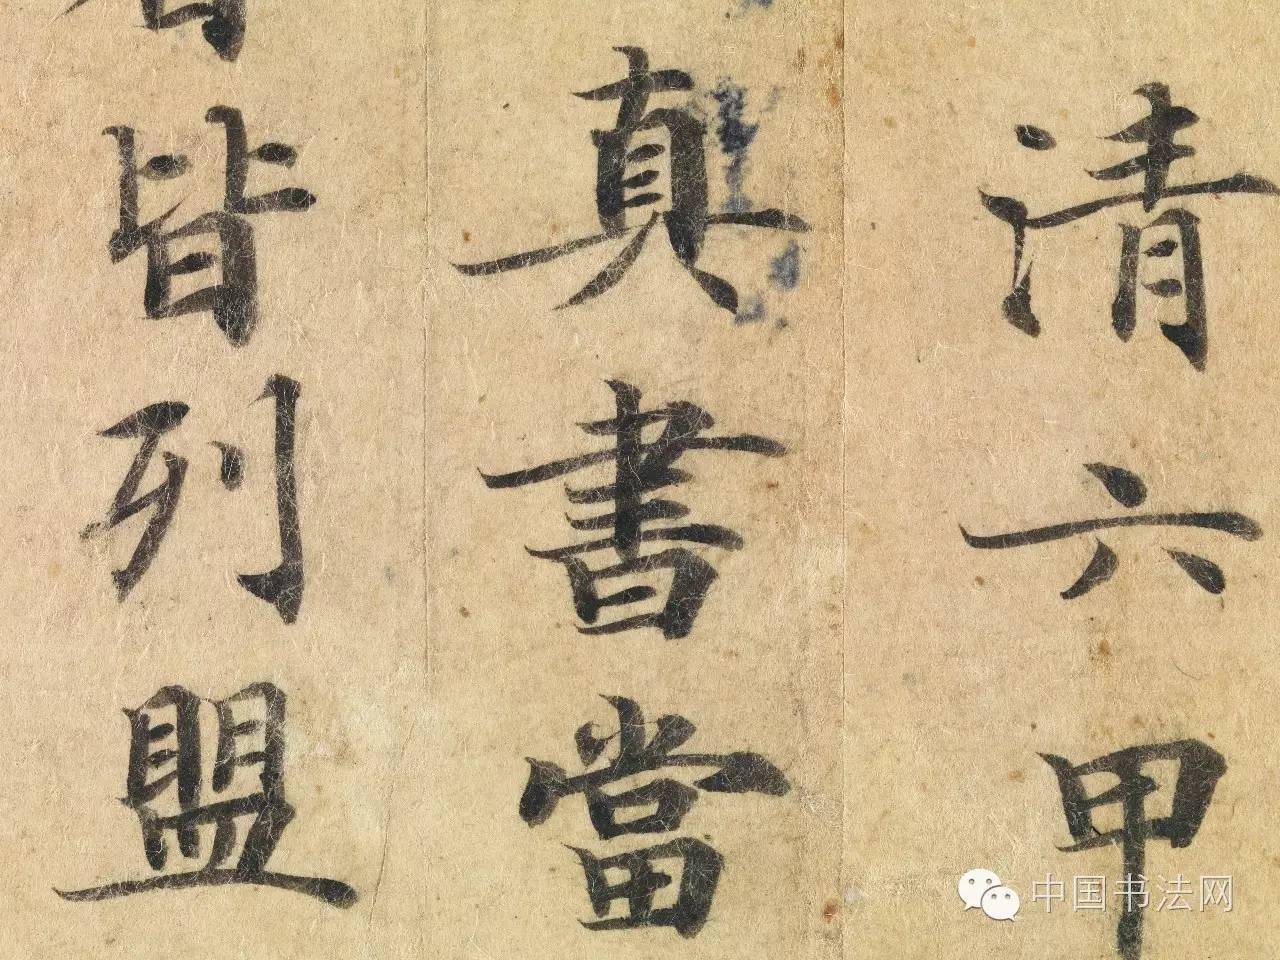 清六甲
真書當
皆列盟
中国书法网